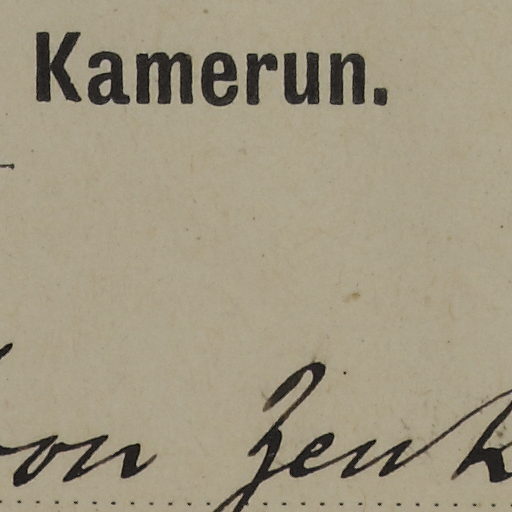 Kamerun.
von Zenk